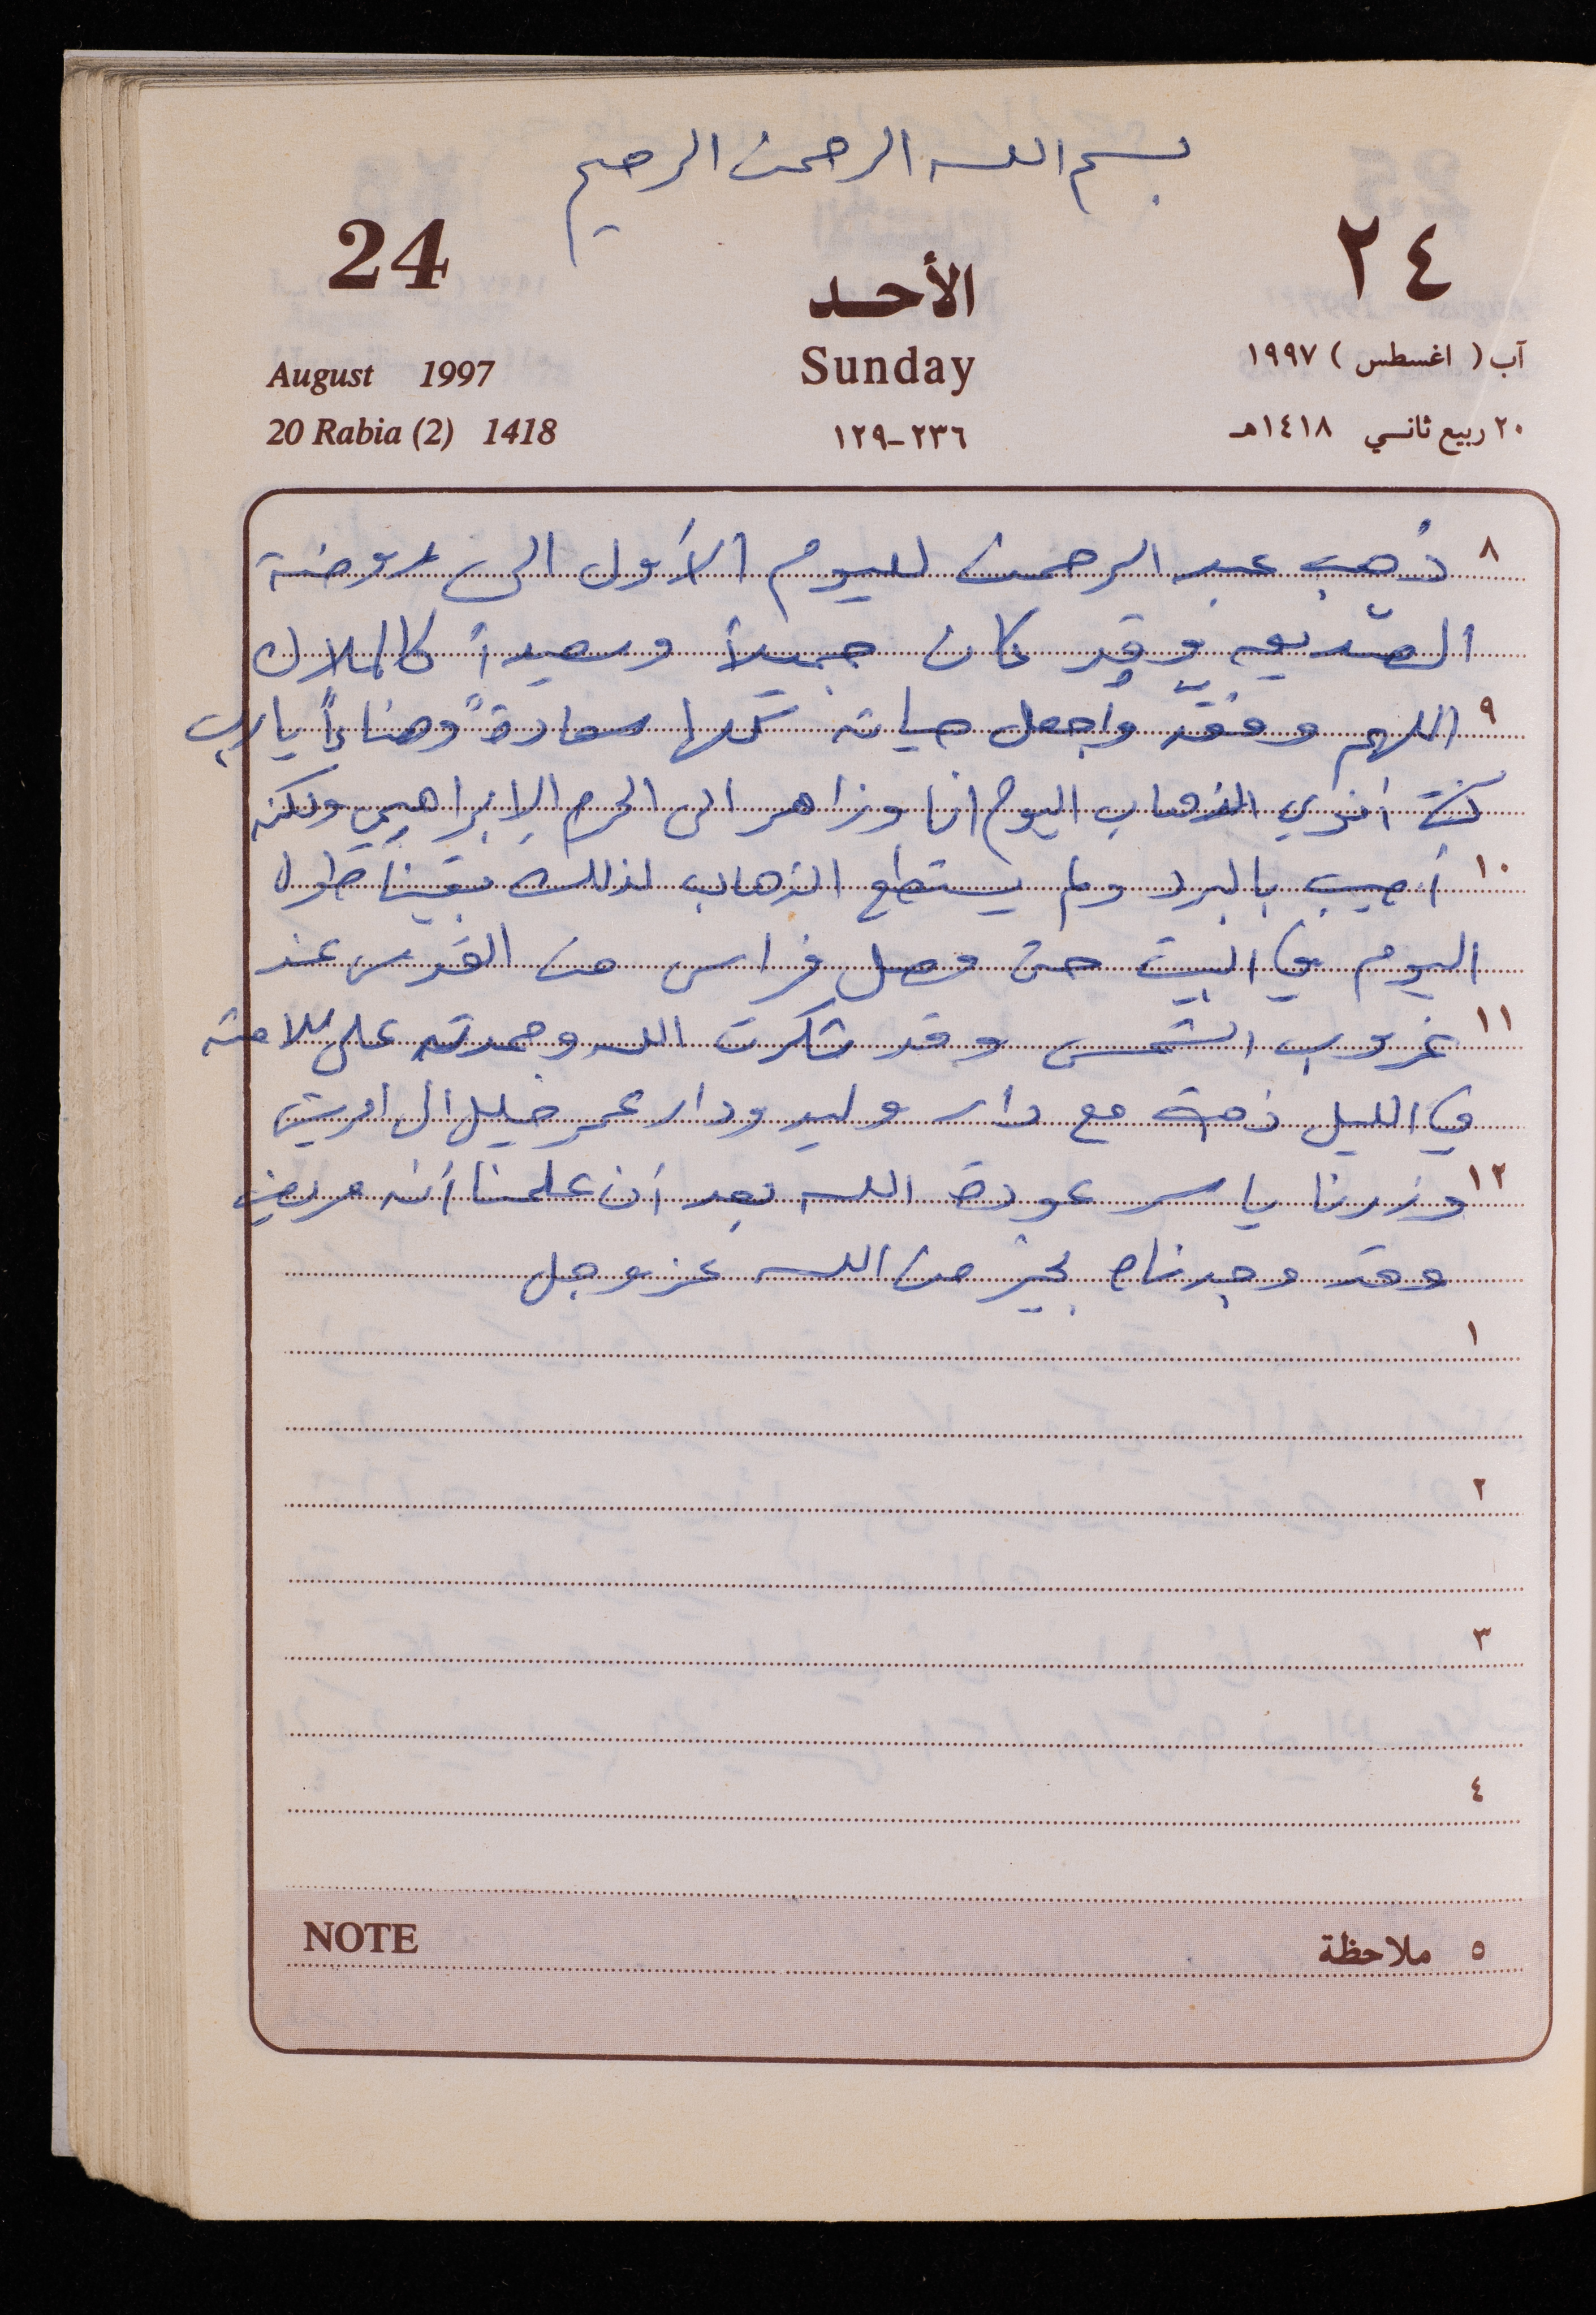 بسم الله الرحمن الرحيم
24
الأحد
٢٤
August 1997
Sunday
آب ( اغسطس ) ١٩٩٧
20 Rabia (2) 1418
٢٣٦-١٢٩
٢٠ ربيع ثاني ١٤١٨هـ
٨ ذهب عبد الرحمن لليوم الأول الى روضة
الصديق وقد كان جميلاً وسعيداً كالملاك
٩ اللهم وفقه واجعل حياته كلها سعادةً وهناءاً يا رب
كنت أنوي الذهاب اليوم انا وزاهر الى الحرم الإبراهيمي ولكنه
١٠ أصيب بالبرد ولم يستطع الذهاب لذلك بقينا طول
اليوم في البيت حتى وصل فراس من القدس عند
١١ غروب الشمس وقد شكرت الله وحمدته على سلامته
في الليل ذهبت مع دار وليد ودار عمر خليل الى
١٢ وزرنا ياسر عودة الله بعد أن علمنا أنه مريض
وقد وجدناه بخير من الله عز وجل
١
٢
٣
٤
NOTE
٥ ملاحظة